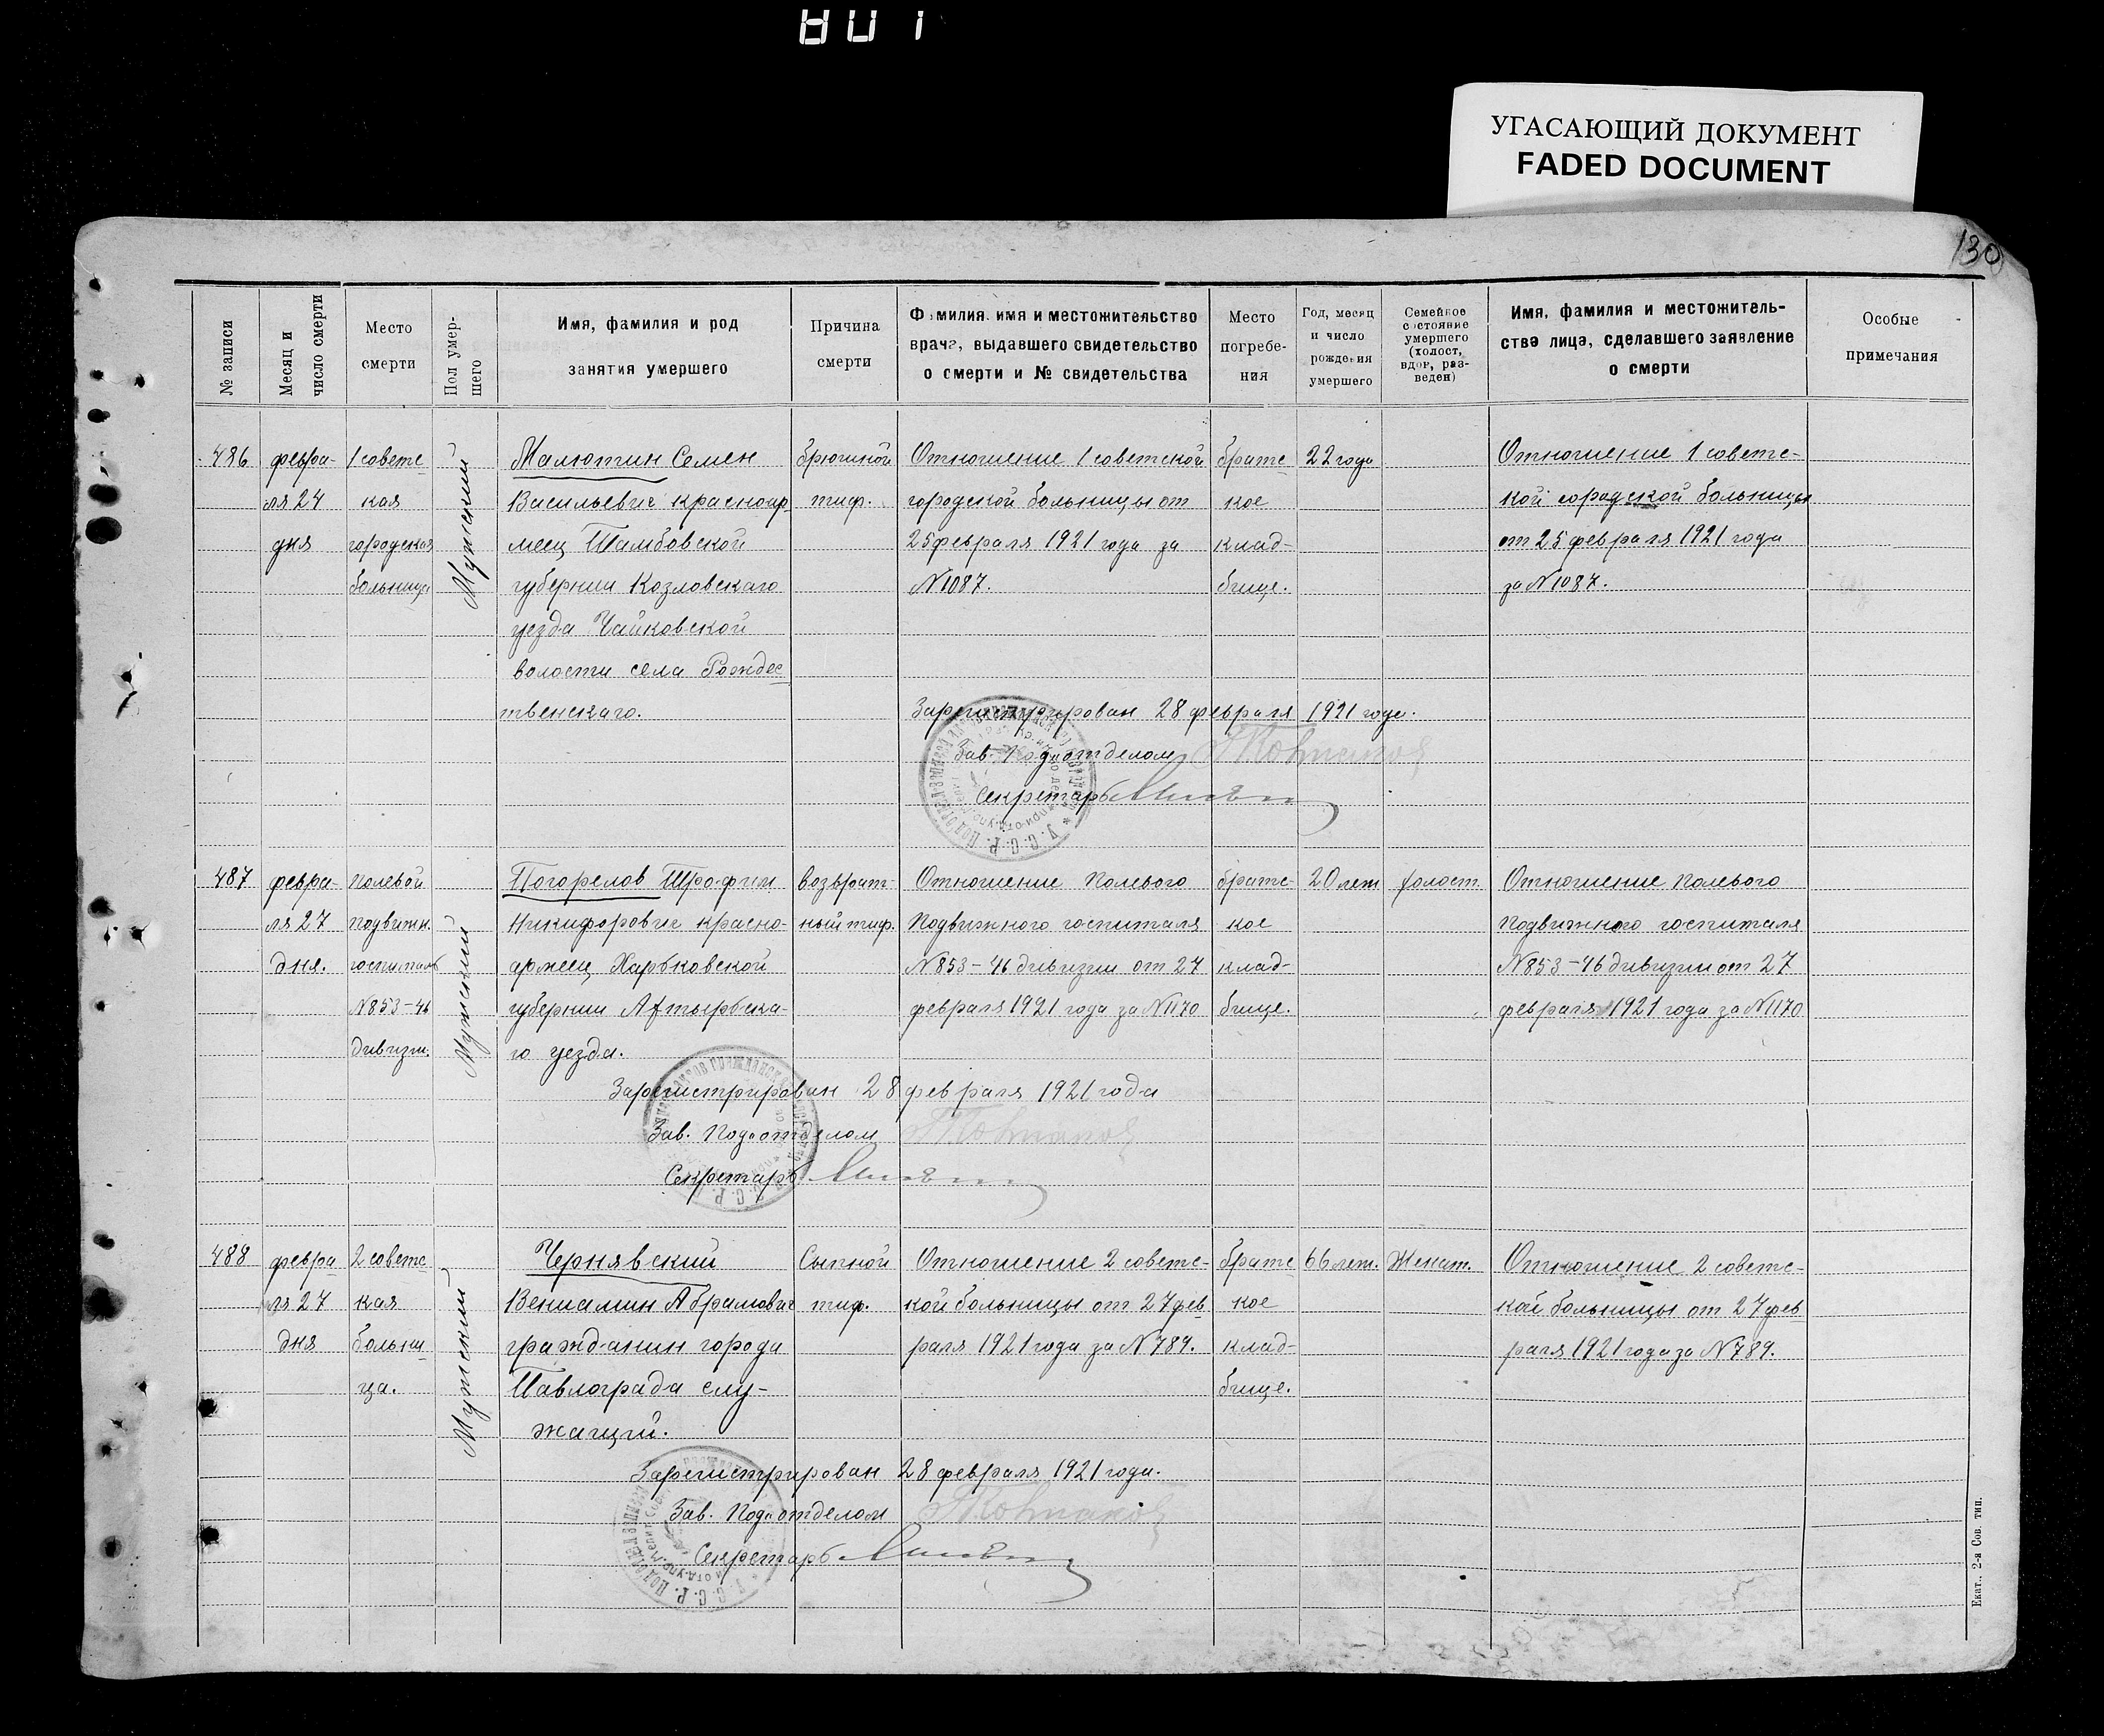 УГАСАЮЩИЙ ДОКУМЕНТ
FADED DOCUMENT
130
№ записи
Месяц и
число смерти
Место
смерти
Пол умер-
шего
Имя, фамилия и род
занятия умершего
Причина
смерти
Фамилия, имя и местожительство
врача, выдавшего свидетельство
о смерти и № свидетельства
Место
погребе-
ния
Год, месяц
и число
рождения
умершего
Семейное
состояние
умершего
(холост,
вдов, раз-
веден)
Имя, фамилия и местожитель-
ство лица, сделавшего заявление
о смерти
Особые
примечания
486
февра-
ля 24
дня
1 советс
кая
городская
больница
Мужский
Малютин Семен
Васильевич красноар
меец Тамбовской
губернии Козловскаго
уезда Чайковской
волости села Рождес
твенскаго.
брюшной
тиф.
Отношение 1 советской
городской больницы от
25 февраля 1921 года за
№ 1087.
братс
кое
клад-
бище.
22 года
Отношение 1 советс-
кой городской больницы
от 25 февраля 1921 года
за № 1087.
Зарегистрирован 28 февраля 1921 года.
Зав. Подотделом
Секретарь
487
февра-
ля 27
дня.
Полевой
подвижн.
госпиталь
№ 853-46
дивизии.
Мужский
Погорелов Трофим
Никифорович красно-
армеец Харьковской
губернии Ахтырьска-
го уезда.
возврат-
ный тиф.
Отношение Полевого
Подвижного госпиталя
№ 853-46 дивизии от 27
февраля 1921 года за № 1170
братс-
кое
клад-
бище.
20 лет
холост.
Отношение Полевого
Подвижного госпиталя
№ 853-46 дивизии от 27
февраля 1921 года за № 1170
Зарегистрирован 28 февраля 1921 года
Зав. Подотделом
Секретарь
488
февра
ля 27
дня
2 советс
кая
больни
ца.
Мужский
Чернявский
Вениамин Абрамович
гражданин города
Павлограда слу-
жащий.
Сыпной
тиф.
Отношение 2 советс-
кой больницы от 27 фев
раля 1921 года за № 789.
братс
кое
клад-
бище.
66 лет.
Женат.
Отношение 2 советс-
кой больницы от 27 фев
раля 1921 года за № 789.
Зарегистрирован 28 февраля 1921 года.
Зав. Подотделом
Секретарь
Екат., 2-я Сов. тип.